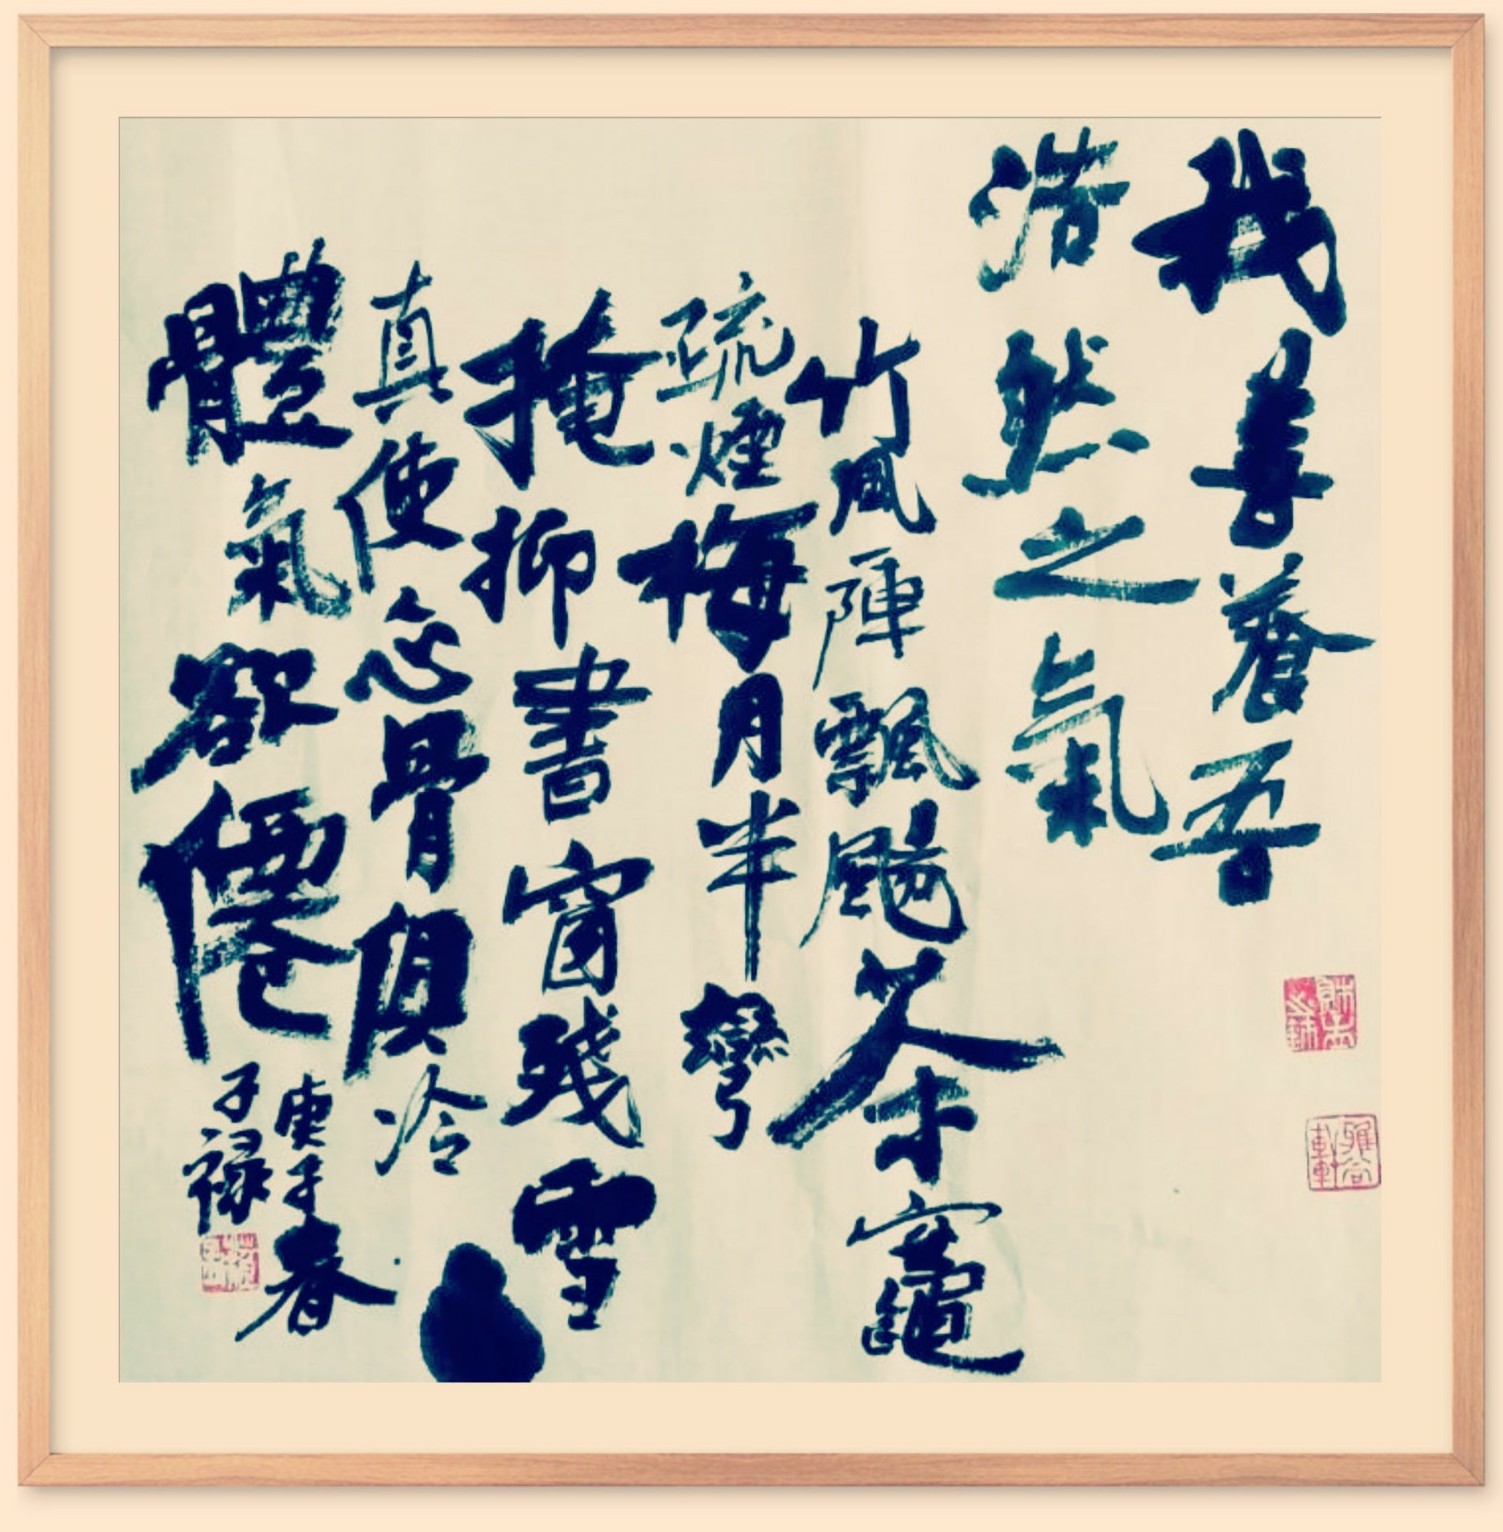 我善養吾
浩然之氣
竹風陣飄颺茶竈
疏煙梅月半彎
掩抑書窗殘雪
真使心骨俱冷
體氣欲僊
庚子春
子祿